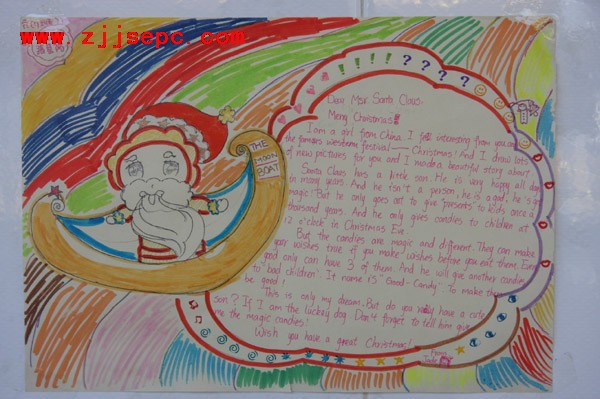 www.zjjsepc.com
Dear Mr. Santa Claus:
Merry Christmas!
I am a girl from China. I fell interesting from you and
the famous western festival——Christmas! And I drew lots
of new pictures for you and I made a beautiful story about
Santa Claus has a little son. He is very happy all day
in many years. And he isn't a person, he is a god, he's so
magic! But he only goes out to give "presents" to kids once a
thousand years. And he only gives candies to children at
12 o'clock in Christmas Eve.
But the candies are magic and different. They can make
your wishes true if you make wishes before you eat them. Every
good only can have 3 of them. And he will give another candies
to "bad children". It name is "Good-Candy". To make them
be good!
This is only my dream. But do you really have a cute
son? If I am the luckey dog. Don't forget to tell him give
me the magic candies!
Wish you have a great Christmas!
From:
THE
MOON
BOAT